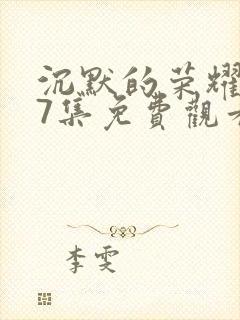 沉默的荣耀
7集免費觀看
李雯